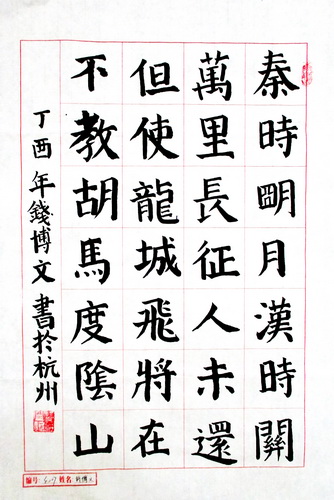 秦時明月漢時關
萬里長征人未還
但使龍城飛將在
不教胡馬度陰山
丁酉年錢博文書於杭州
编号: 姓名: